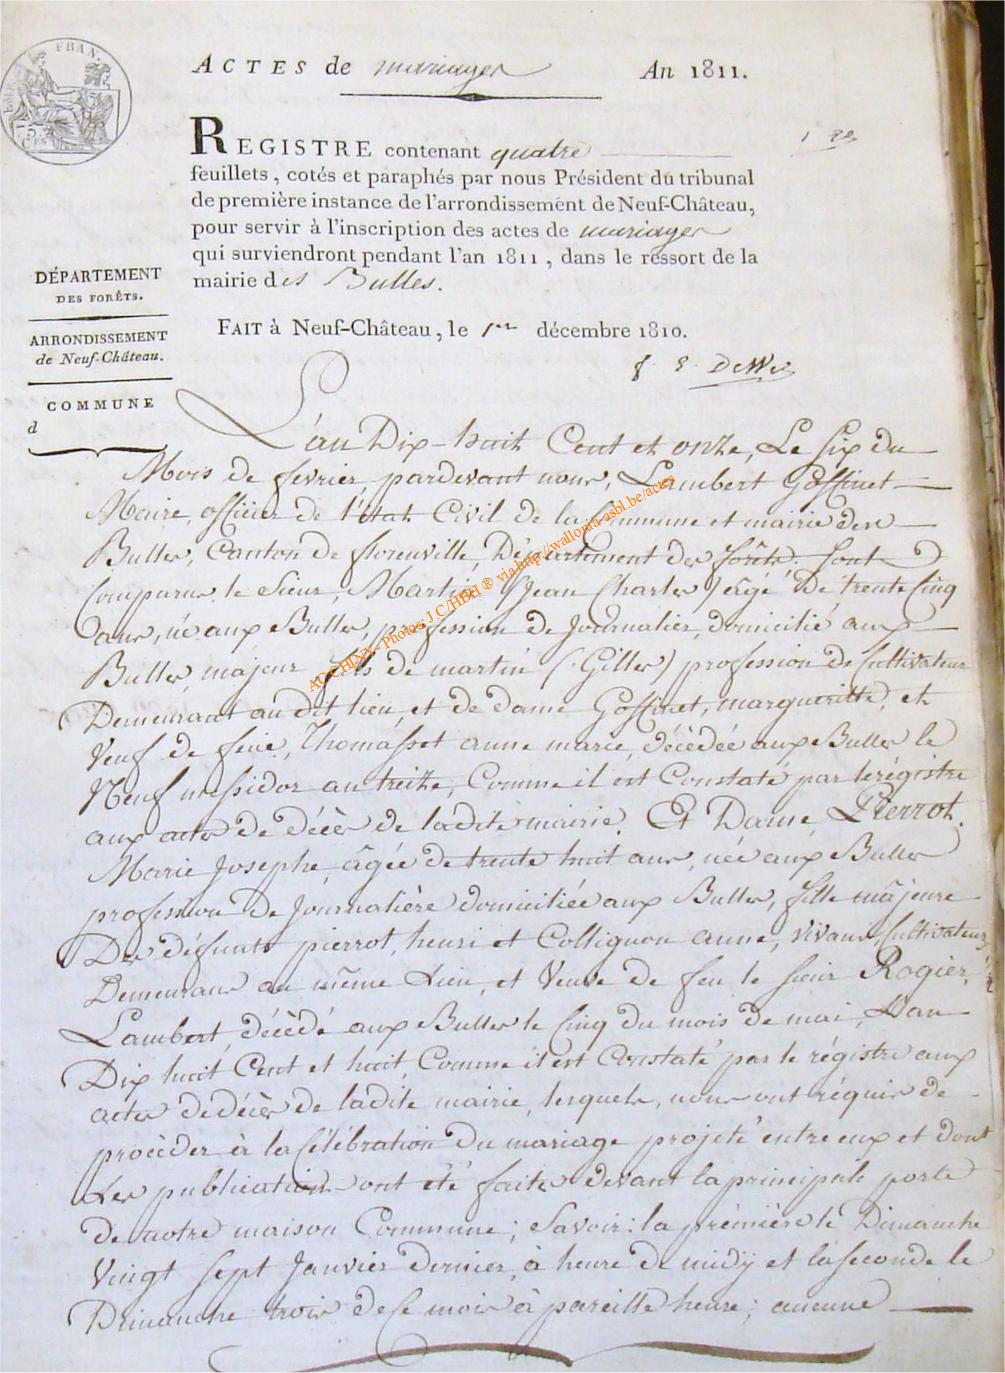 FRAN.
75
CES
ACTES de mariages An 1811.
REGISTRE contenant quatre
feuillets, cotés et paraphés par nous Président du tribunal
de première instance de l'arrondissement de Neuf-Château,
pour servir à l'inscription des actes de mariages
qui surviendront pendant l'an 1811, dans le ressort de la
mairie des Bulles.
FAIT à Neuf-Château, le 1er décembre 1810.
DÉPARTEMENT
DES FORÊTS.
ARRONDISSEMENT
de Neuf-Château.
COMMUNE
d
L'an Dix-huit Cent et onze, Le six du
Mois de fevrier pardevant nous, Lambert Goffinet
Maire, officier de l'état Civil de la Commune et mairie des
Bulles, Canton de florenville, Département des forêts. Sont
Comparus le Sieur, Martin (Jean Charles) agé De trente Cinq
ans, né aux Bulles, profession de Journalier, domicilié aux
Bulles, majeur fils de martin (Gilles) profession de Cultivateur
Demeurant au dit lieu, et de dame Goffinet, margueritte, et
Veuf de feue, Thomasset anne marie, décèdée aux Bulles le
Neuf messidor an treitte, Comme il est Constaté par le régistre
aux actes de décès de ladite mairie. Et Dame, Pierrot.
Marie Josephe, âgée de trente huit ans, née aux Bulles
profession De Journalière domiciliée aux Bulles, fille majeure
Des défunts pierrot, henri et Collignon anne, vivans, Cultivateurs
Demeurans au même Lieu, et Veuve de feu le sieur Rogier,
Lambert, décèdé aux Bulles le Cinq du mois de mai, L'an
Dix huit Cent et huit, Comme il est Constaté par le régistre aux
actes de décès de ladite mairie, lesquels, nous ont réquis de
procèder à la Célébration Du mariage projeté entre eux et dont
Les publications ont été faites devant la principale porte
de notre maison Commune; Savoir: la prémière le Dimanche
Vingt sept Janvier dernier, à heure de midÿ et la seconde le
Dimanche trois de Ce mois à pareille heure; aucune
ACCHINY - Photos: J.C/HBH ® via http://wallonia-asbl.be/actes